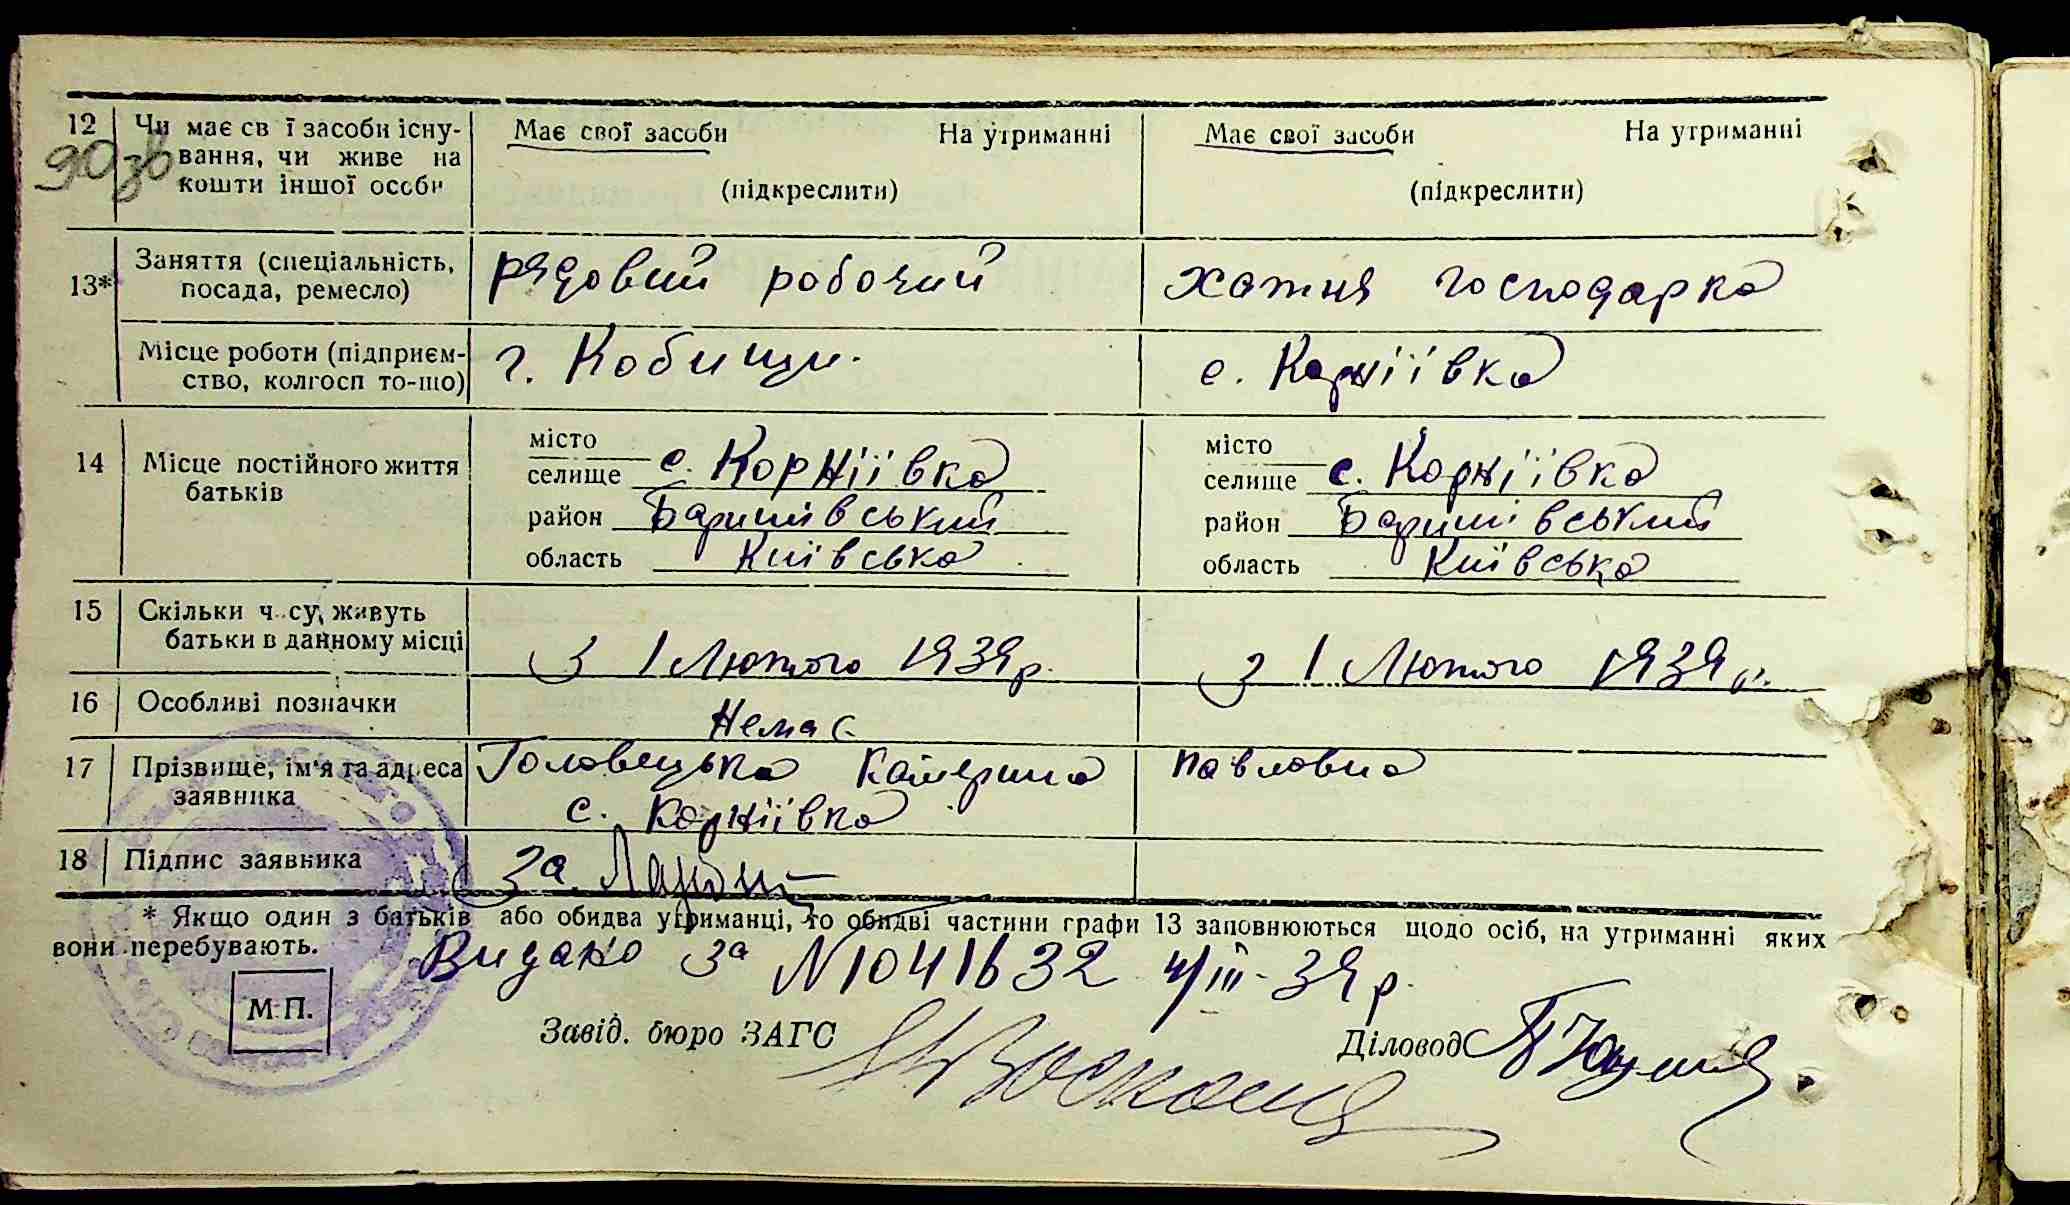 12 Чи має св ї засоби існу- Має свої засоби На утриманні Має свої засоби На утриманні
90 зв вання, чи живе на
кошти іншої особи (підкреслити) (підкреслити)
13* Заняття (спеціальність, рядовий робочий хатня господарка
посада, ремесло)
Місце роботи (підприєм- г. Кобищи. с. Корніївка
ство, колгосп то-що)
14 Місце постійного життя місто місто
батьків селище с. Корніївка селище с. Корніївка
район Баришівський район Баришівський
область Київська область Київська
15 Скільки ч су, живуть
батьки в данному місці з 1 Лютого 1939 р. з 1 Лютого 1939 р.
16 Особливі позначки Немає
17 Прізвище, ім'я та адреса Головецька Катерина Павловна
заявника с. Корніївка
18 Підпис заявника За
* Якщо один з батьків або обидва утриманці, то обидві частини графи 13 заповнюються щодо осіб, на утриманні яких
вони перебувають.
Видано за №1041632 4/III-39 р.
М.П.
Завід. бюро ЗАГС Діловод